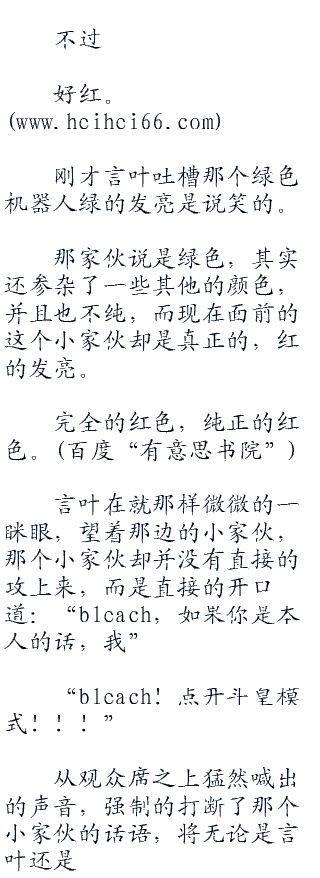 不过
好红。
(www.hcihci66.com)
刚才言叶吐槽那个绿色
机器人绿的发亮是说笑的。
那家伙说是绿色，其实
还参杂了一些其他的颜色，
并且也不纯，而现在面前的
这个小家伙却是真正的，红
的发亮。
完全的红色，纯正的红
色。(百度“有意思书院”)
言叶在就那样微微的一
眯眼，望着那边的小家伙，
那个小家伙却并没有直接的
攻上来，而是直接的开口
道：“blcach，如果你是本
人的话，我”
“blcach！点开斗皇模
式！！！”
从观众席之上猛然喊出
的声音，强制的打断了那个
小家伙的话语，将无论是言
叶还是